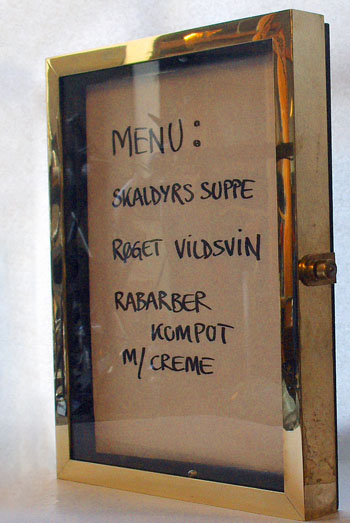 MENU:
SKALDYRS SUPPE
RØGET VILDSVIN
RABARBER
KOMPOT
M/ CREME